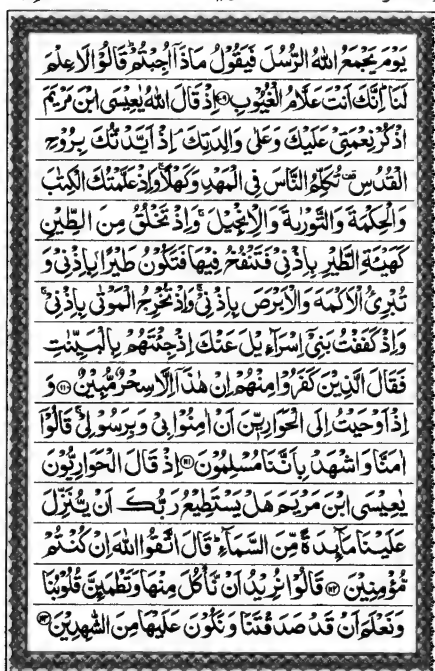 يَوْمَ يَجْمَعُ اللّٰهُ الرُّسُلَ فَيَقُوْلُ مَاذَاۤ اُجِبْتُمْ ؕ قَالُوْا لَا عِلْمَ
لَنَا ؕ اِنَّكَ اَنْتَ عَلَّامُ الْغُيُوْبِ ﴿۱۰۹﴾ اِذْ قَالَ اللّٰهُ يٰعِيْسَى ابْنَ مَرْيَمَ
اذْكُرْ نِعْمَتِيْ عَلَيْكَ وَعَلٰى وَالِدَتِكَ ۘ اِذْ اَيَّدْتُّكَ بِرُوْحِ
الْقُدُسِ ۟ تُكَلِّمُ النَّاسَ فِي الْمَهْدِ وَكَهْلًا ۚ وَاِذْ عَلَّمْتُكَ الْكِتٰبَ
وَالْحِكْمَةَ وَالتَّوْرٰىةَ وَالْاِنْجِيْلَ ۚ وَاِذْ تَخْلُقُ مِنَ الطِّيْنِ
كَهَيْـَٔةِ الطَّيْرِ بِاِذْنِيْ فَتَنْفُخُ فِيْهَا فَتَكُوْنُ طَيْرًۢا بِاِذْنِيْ وَ
تُبْرِئُ الْاَكْمَهَ وَالْاَبْرَصَ بِاِذْنِيْ ۚ وَاِذْ تُخْرِجُ الْمَوْتٰى بِاِذْنِيْ ۚ
وَاِذْ كَفَفْتُ بَنِيْۤ اِسْرَآءِيْلَ عَنْكَ اِذْ جِئْتَهُمْ بِالْبَيِّنٰتِ
فَقَالَ الَّذِيْنَ كَفَرُوْا مِنْهُمْ اِنْ هٰذَاۤ اِلَّا سِحْرٌ مُّبِيْنٌ ﴿۱۱۰﴾ وَ
اِذْ اَوْحَيْتُ اِلَى الْحَوَارِيّٖنَ اَنْ اٰمِنُوْا بِيْ وَبِرَسُوْلِيْ ۚ قَالُوْۤا
اٰمَنَّا وَاشْهَدْ بِاَنَّنَا مُسْلِمُوْنَ ﴿۱۱۱﴾ اِذْ قَالَ الْحَوَارِيُّوْنَ
يٰعِيْسَى ابْنَ مَرْيَمَ هَلْ يَسْتَطِيْعُ رَبُّكَ اَنْ يُّنَزِّلَ
عَلَيْنَا مَآئِدَةً مِّنَ السَّمَآءِ ؕ قَالَ اتَّقُوا اللّٰهَ اِنْ كُنْتُمْ
مُّؤْمِنِيْنَ ﴿۱۱۲﴾ قَالُوْا نُرِيْدُ اَنْ نَّاْكُلَ مِنْهَا وَتَطْمَئِنَّ قُلُوْبُنَا
وَنَعْلَمَ اَنْ قَدْ صَدَقْتَنَا وَنَكُوْنَ عَلَيْهَا مِنَ الشّٰهِدِيْنَ ﴿۱۱۳﴾